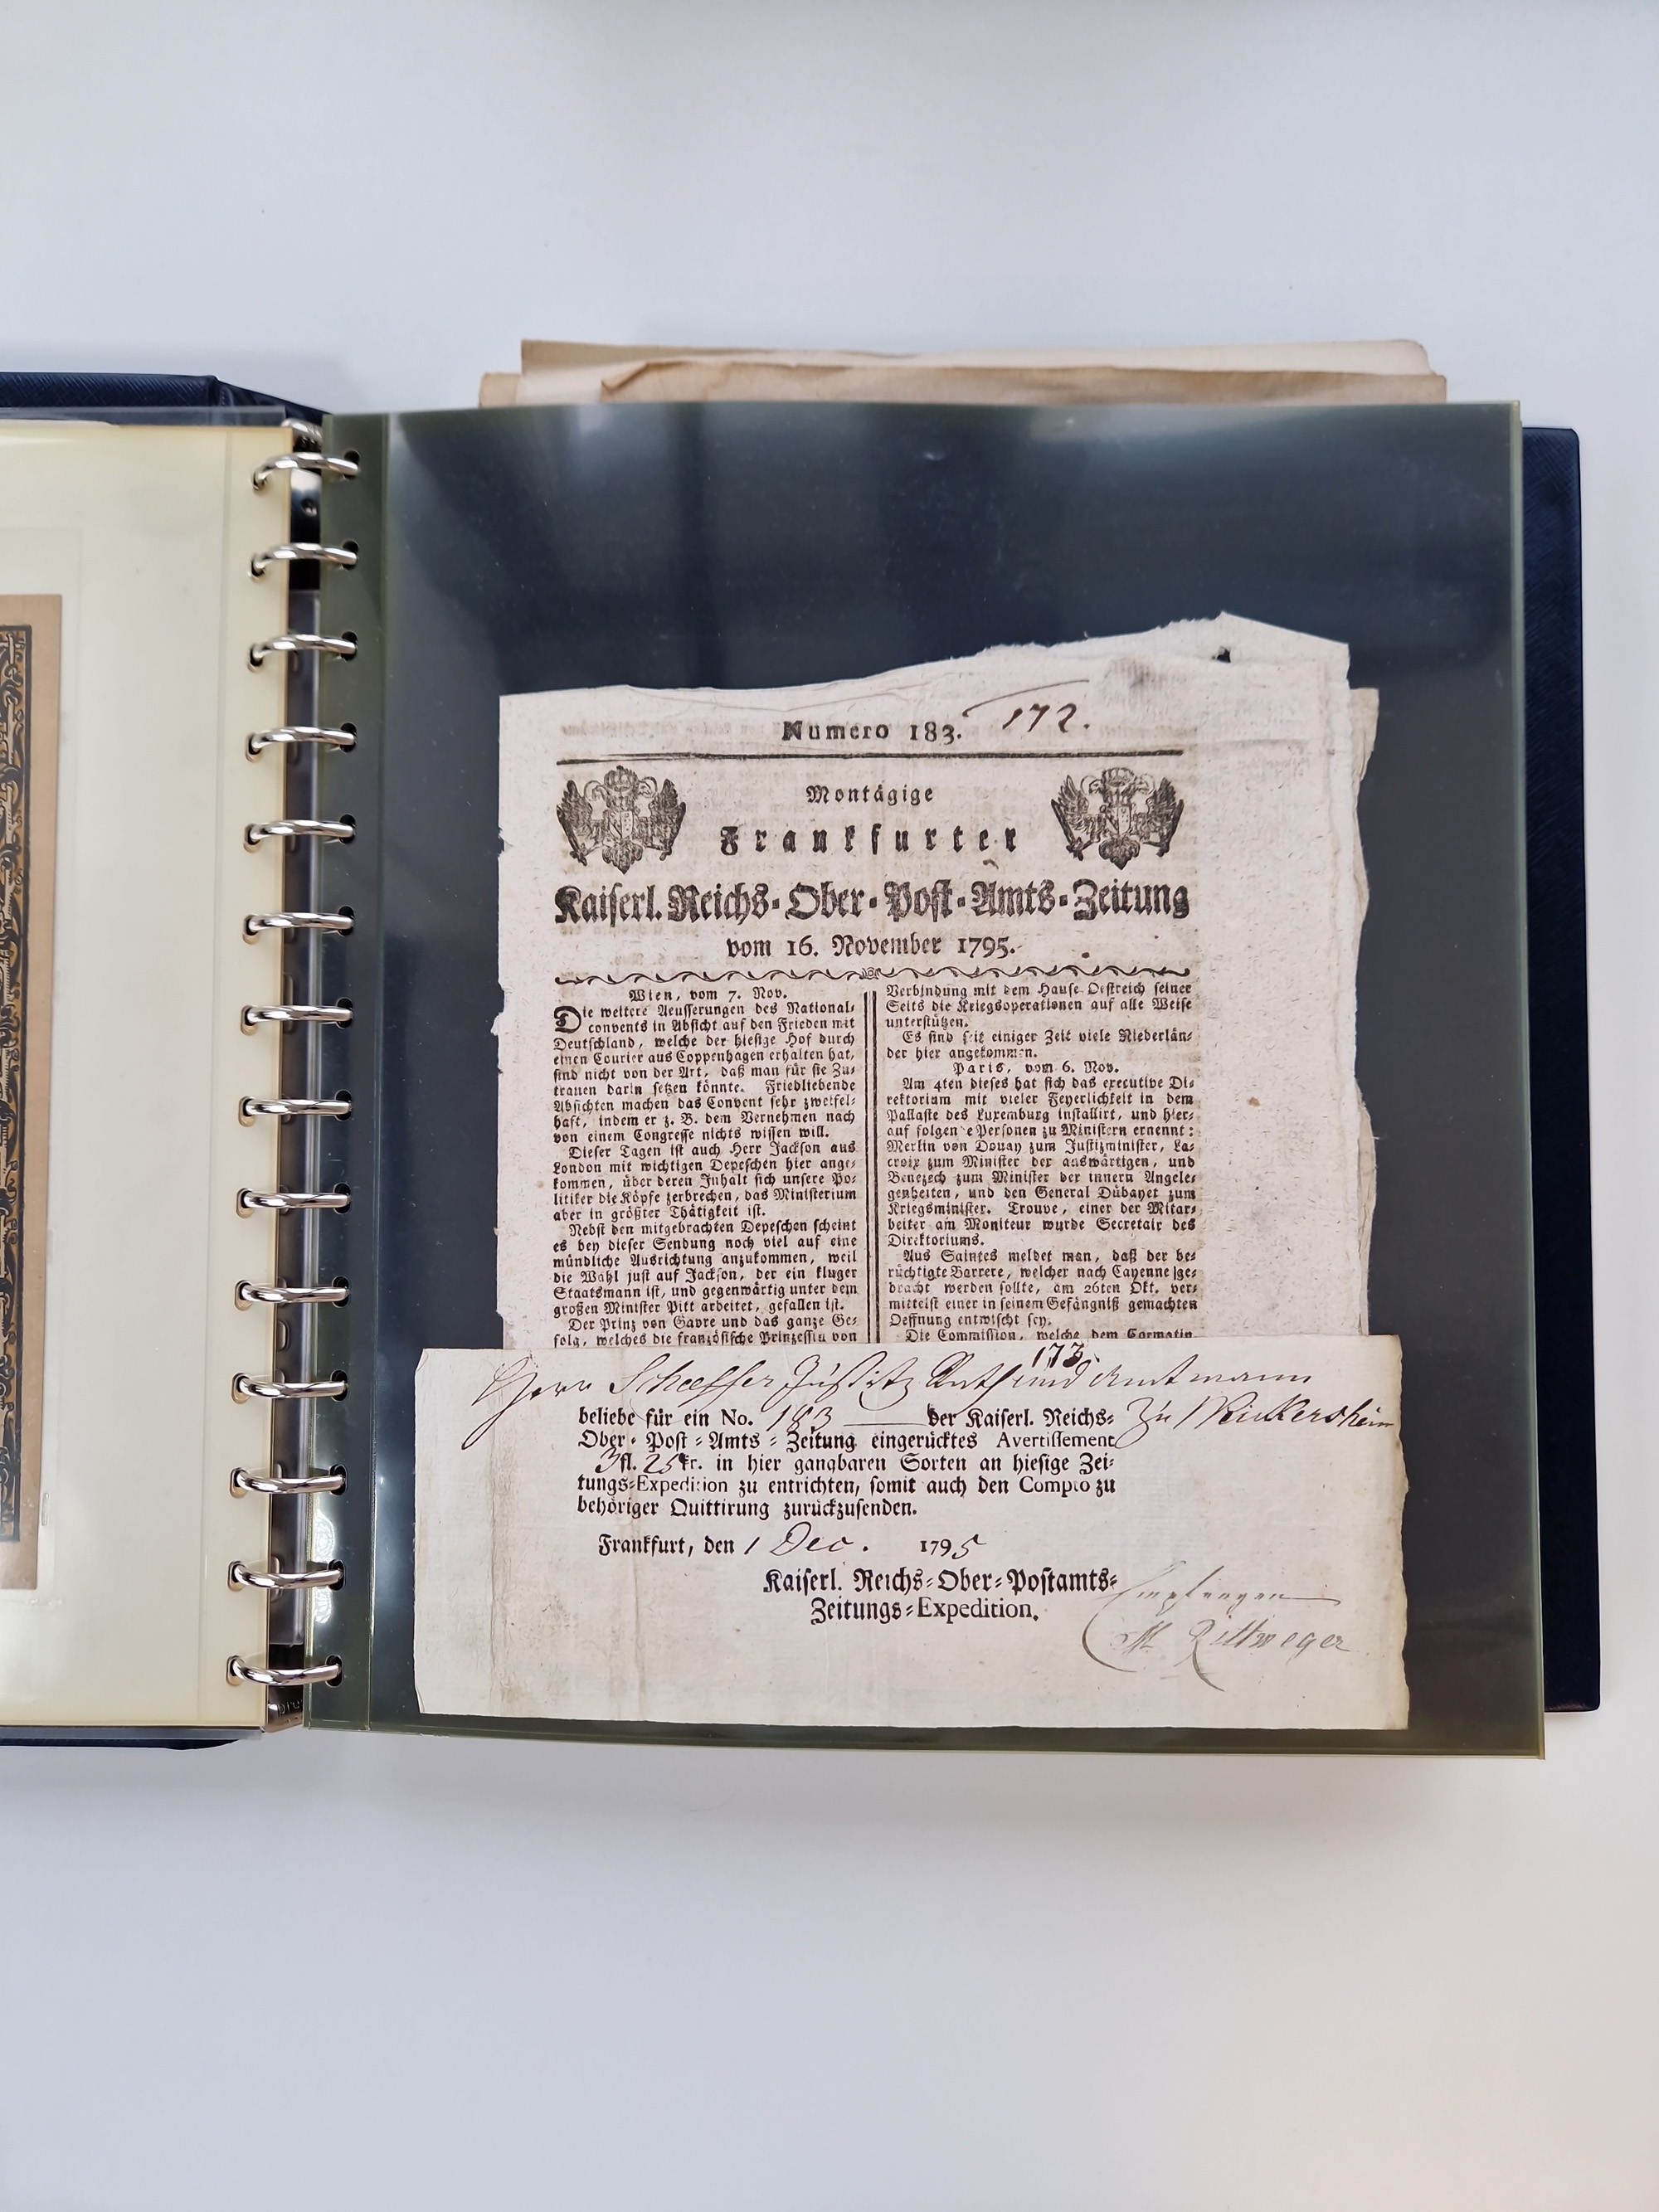 Numero 183.
172.
Montägige
Frankfurter
Kaiserl. Reichs-Ober-Post-Amts-Zeitung
vom 16. November 1795.
Wien, vom 7. Nov.
Die weitere Aeusserungen des National-
convents in Absicht auf den Frieden mit
Deutschland, welche der hiesige Hof durch
einen Courier aus Coppenhagen erhalten hat,
sind nicht von der Art, daß man für sie Zu-
trauen darin setzen könnte. Friedliebende
Absichten machen das Convent sehr zweifel-
haft, indem er z. B. dem Vernehmen nach
von einem Congresse nichts wissen will.
Dieser Tagen ist auch Herr Jackson aus
London mit wichtigen Depeschen hier ange-
kommen, über deren Inhalt sich unsere Po-
litiker die Köpfe zerbrechen, das Ministerium
aber in größter Thätigkeit ist.
Nebst den mitgebrachten Depeschen scheint
es bey dieser Sendung noch viel auf eine
mündliche Ausrichtung anzukommen, weil
die Wahl just auf Jackson, der ein kluger
Staatsmann ist, und gegenwärtig unter dem
großen Minister Pitt arbeitet, gefallen ist.
Der Prinz von Gavre und das ganze Ge-
folg, welches die französische Prinzessin von
Verbindung mit dem Hause Oestreich seiner
Seits die Kriegsoperationen auf alle Weise
unterstützen.
Es sind seit einiger Zeit viele Niederlän-
der hier angekommen.
Paris, vom 6. Nov.
Am 4ten dieses hat sich das executive Di-
rektorium mit vieler Feyerlichkeit in dem
Pallaste des Luxemburg installirt, und hier-
auf folgende Personen zu Ministern ernennt:
Merlin von Douay zum Justizminister, La-
croix zum Minister der auswärtigen, und
Benezech zum Minister der innern Angele-
genheiten, und den General Dübayet zum
Kriegsminister. Trouve, einer der Mitar-
beiter am Moniteur wurde Secretair des
Direktoriums.
Aus Saintes meldet man, daß der be-
rüchtigte Barrere, welcher nach Cayenne ge-
bracht werden sollte, am 26ten Okt. ver-
mittelst einer in seinem Gefängniß gemachten
Oeffnung entwischt sey.
Die Commission, welche dem Cormatin
173.
Herr Scheffer Justitz Rath und Amtmann
zu Weickersheim
beliebe für ein No. 183 der Kaiserl. Reichs-
Ober-Post-Amts-Zeitung eingerücktes Avertissement
3 fl. 25 kr. in hier gangbaren Sorten an hiesige Zei-
tungs-Expedition zu entrichten, somit auch den Compto zu
behöriger Quittirung zurückzusenden.
Frankfurt, den 1 Dec. 1795
Kaiserl. Reichs-Ober-Postamts-
Zeitungs-Expedition.
Empfangen
Rittweger